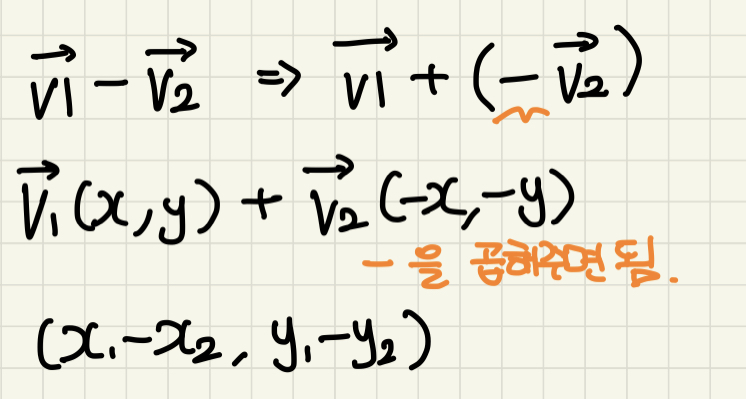 v1 - v2 => v1 + (-v2)
V₁(x,y) + V₂(-x,-y)
- 을 곱해주면 됨.
(x₁-x₂, y₁-y₂)